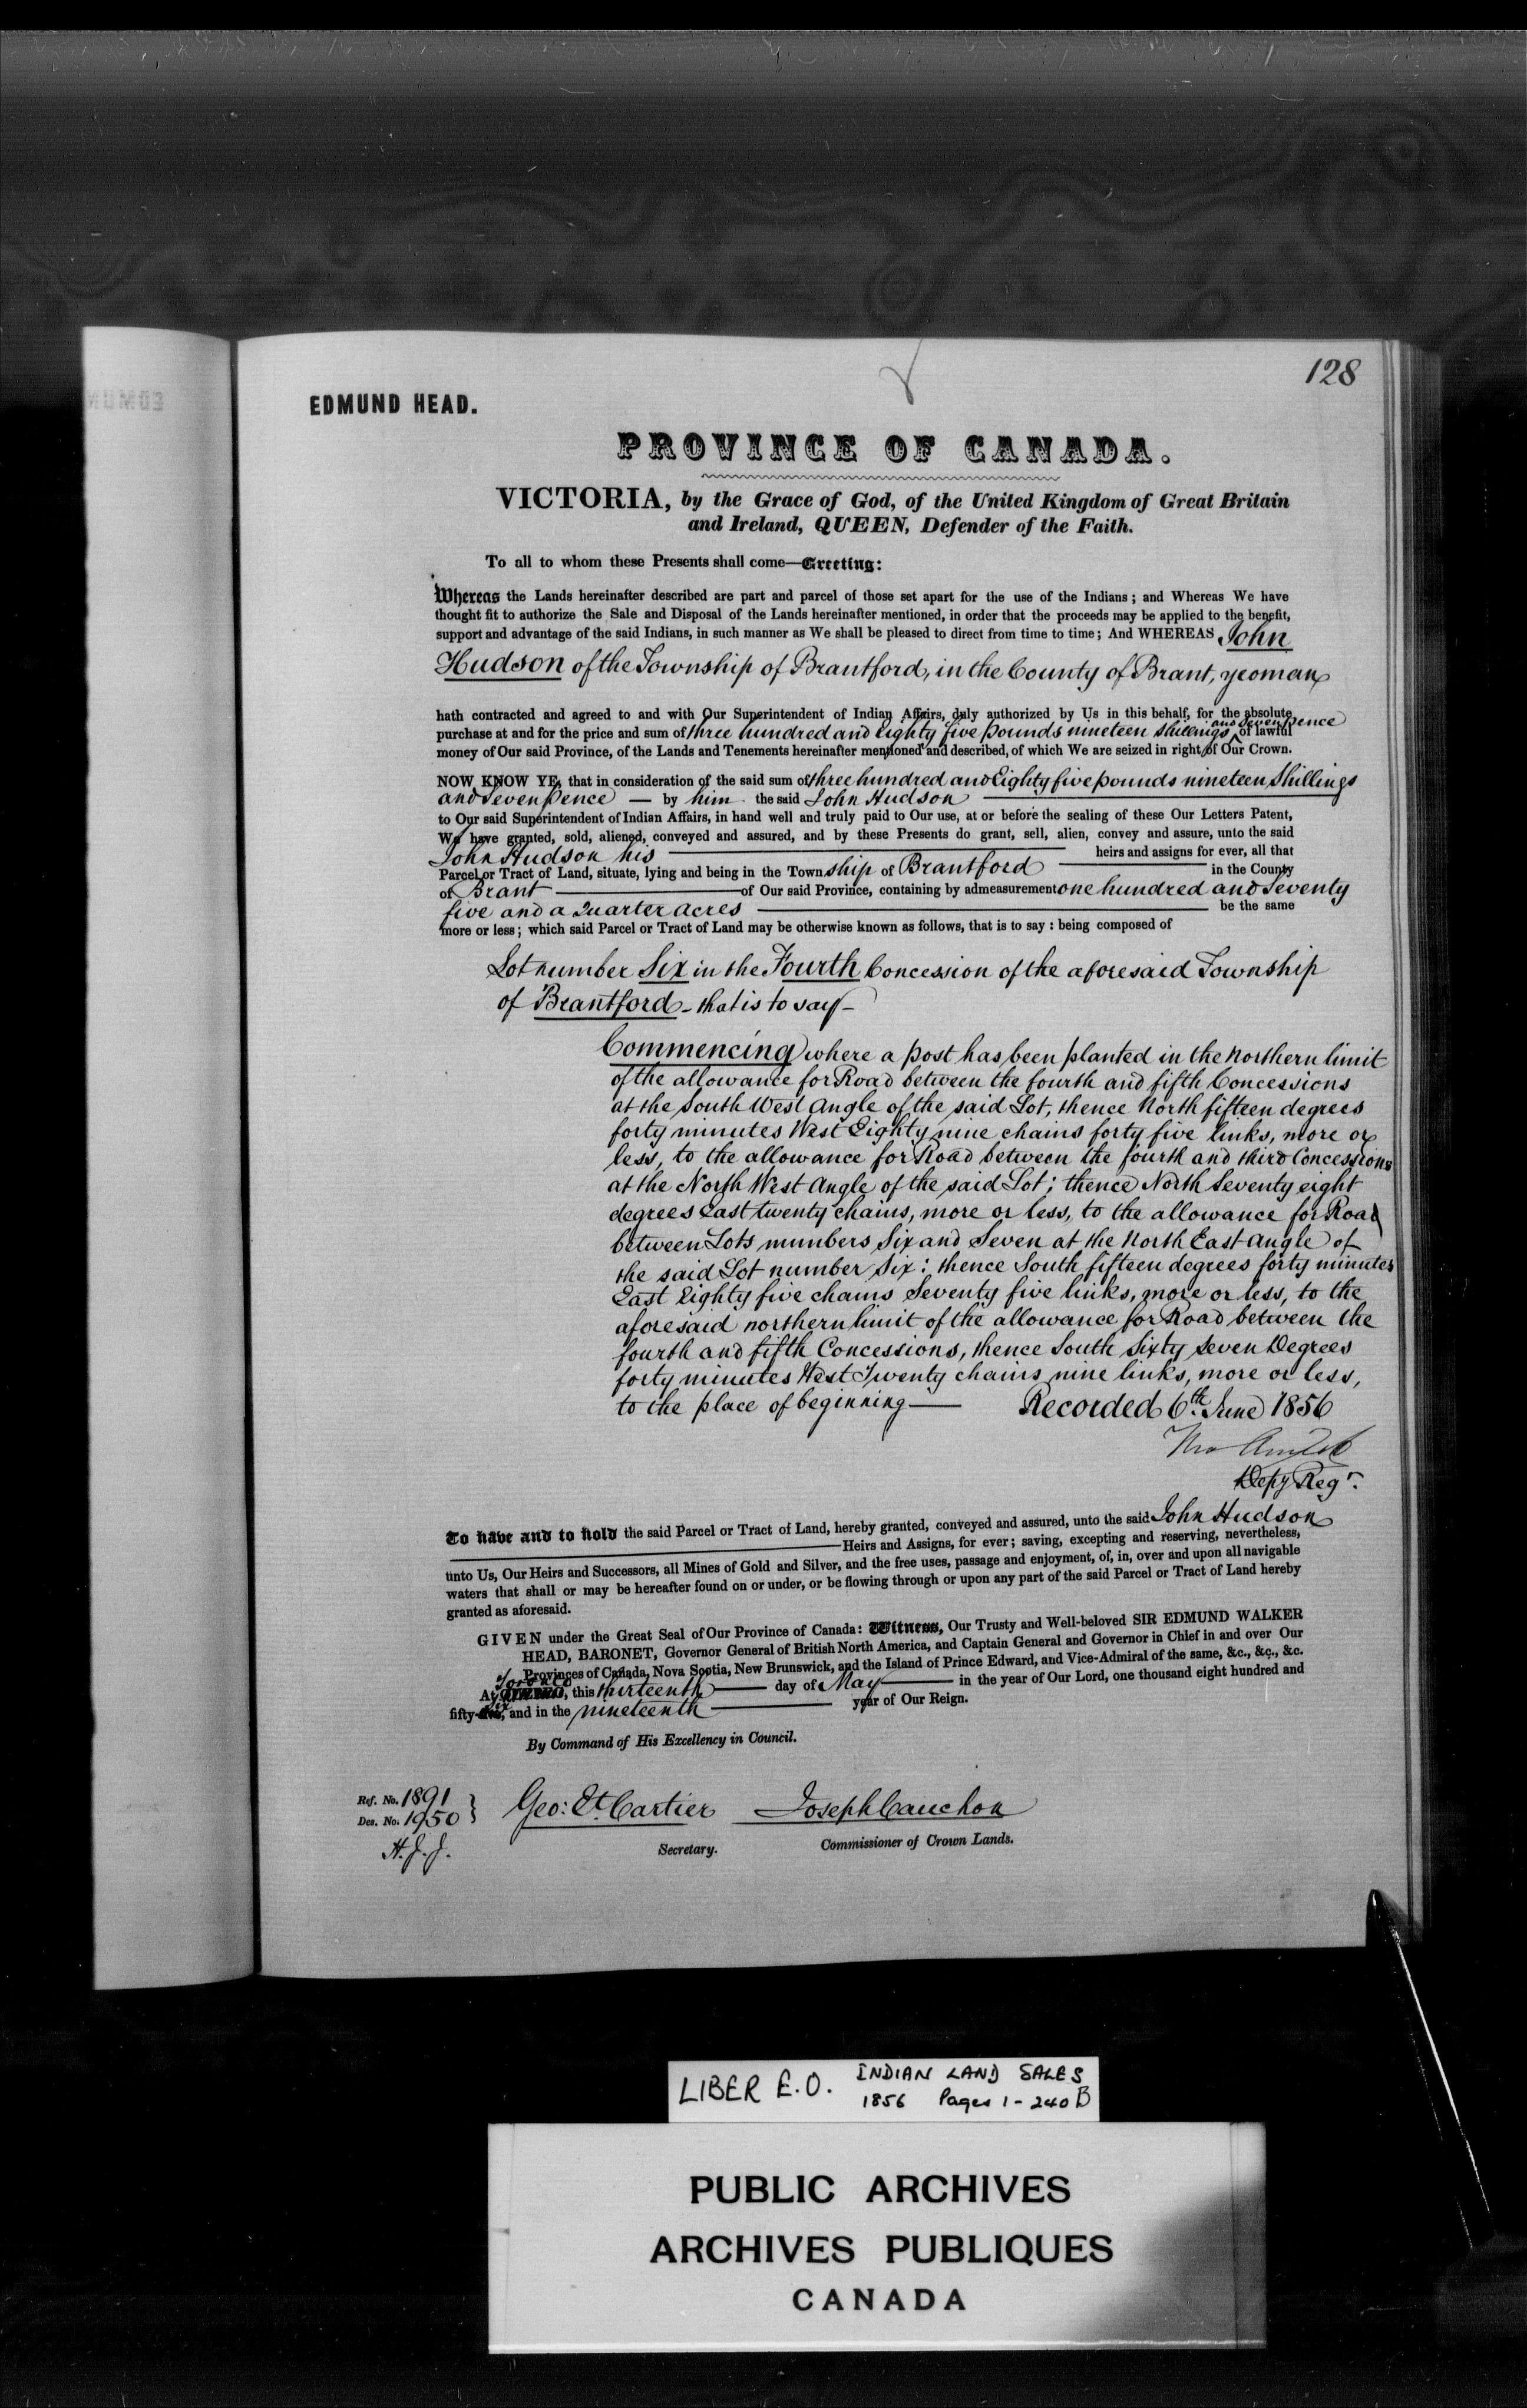 128
EDMUND HEAD.
PROVINCE OF CANADA.
VICTORIA, by the Grace of God, of the United Kingdom of Great Britain
and Ireland, QUEEN, Defender of the Faith.
To all to whom these Presents shall come—Greeting:
Whereas the Lands hereinafter described are part and parcel of those set apart for the use of the Indians; and Whereas We have
thought fit to authorize the Sale and Disposal of the Lands hereinafter mentioned, in order that the proceeds may be applied to the benefit,
support and advantage of the said Indians, in such manner as We shall be pleased to direct from time to time; And WHEREAS John
Hudson of the Township of Brantford, in the County of Brant, yeoman
hath contracted and agreed to and with Our Superintendent of Indian Affairs, duly authorized by Us in this behalf, for the absolute
purchase at and for the price and sum of three hundred and eighty five pounds nineteen shillings and seven pence of lawful
money of Our said Province, of the Lands and Tenements hereinafter mentioned and described, of which We are seized in right of Our Crown.
NOW KNOW YE, that in consideration of the said sum of three hundred and Eighty five pounds nineteen Shillings
and Seven pence — by him the said John Hudson
to Our said Superintendent of Indian Affairs, in hand well and truly paid to Our use, at or before the sealing of these Our Letters Patent,
We have granted, sold, aliened, conveyed and assured, and by these Presents do grant, sell, alien, convey and assure, unto the said
John Hudson his heirs and assigns for ever, all that
Parcel or Tract of Land, situate, lying and being in the Township of Brantford in the County
of Brant of Our said Province, containing by admeasurement one hundred and Seventy
five and a Quarter acres be the same
more or less; which said Parcel or Tract of Land may be otherwise known as follows, that is to say: being composed of
Lot number Six in the Fourth Concession of the aforesaid Township
of Brantford - that is to say -
Commencing where a post has been planted in the Northern limit
of the allowance for Road between the fourth and fifth Concessions
at the South West Angle of the said Lot, thence North fifteen degrees
forty minutes West Eighty nine chains forty five links, more or
less, to the allowance for Road between the fourth and third Concessions
at the North West Angle of the said Lot; thence North Seventy eight
degrees East twenty chains, more or less, to the allowance for Road
between Lots numbers Six and Seven at the North East angle of
the said Lot number Six: thence South fifteen degrees forty minutes
East Eighty five chains Seventy five links, more or less, to the
aforesaid northern limit of the allowance for Road between the
fourth and fifth Concessions, thence South Sixty seven Degrees
forty minutes West Twenty chains nine links, more or less,
to the place of beginning — Recorded 6th June 1856
Depy Regr.
To have and to hold the said Parcel or Tract of Land, hereby granted, conveyed and assured, unto the said John Hudson
Heirs and Assigns, for ever; saving, excepting and reserving, nevertheless,
unto Us, Our Heirs and Successors, all Mines of Gold and Silver, and the free uses, passage and enjoyment, of, in, over and upon all navigable
waters that shall or may be hereafter found on or under, or be flowing through or upon any part of the said Parcel or Tract of Land hereby
granted as aforesaid.
GIVEN under the Great Seal of Our Province of Canada: Witness, Our Trusty and Well-beloved SIR EDMUND WALKER
HEAD, BARONET, Governor General of British North America, and Captain General and Governor in Chief in and over Our
Provinces of Canada, Nova Scotia, New Brunswick, and the Island of Prince Edward, and Vice-Admiral of the same, &c., &c., &c.
At Toronto, this thirteenth day of May in the year of Our Lord, one thousand eight hundred and
fifty-six, and in the nineteenth year of Our Reign.
By Command of His Excellency in Council.
Ref. No. 1891
Des. No. 1950
H.J.J.
Geo: Et Cartier
Secretary.
Joseph Cauchon
Commissioner of Crown Lands.
LIBER E.O. INDIAN LAND SALES
1856 Pages 1-240B
PUBLIC ARCHIVES
ARCHIVES PUBLIQUES
CANADA